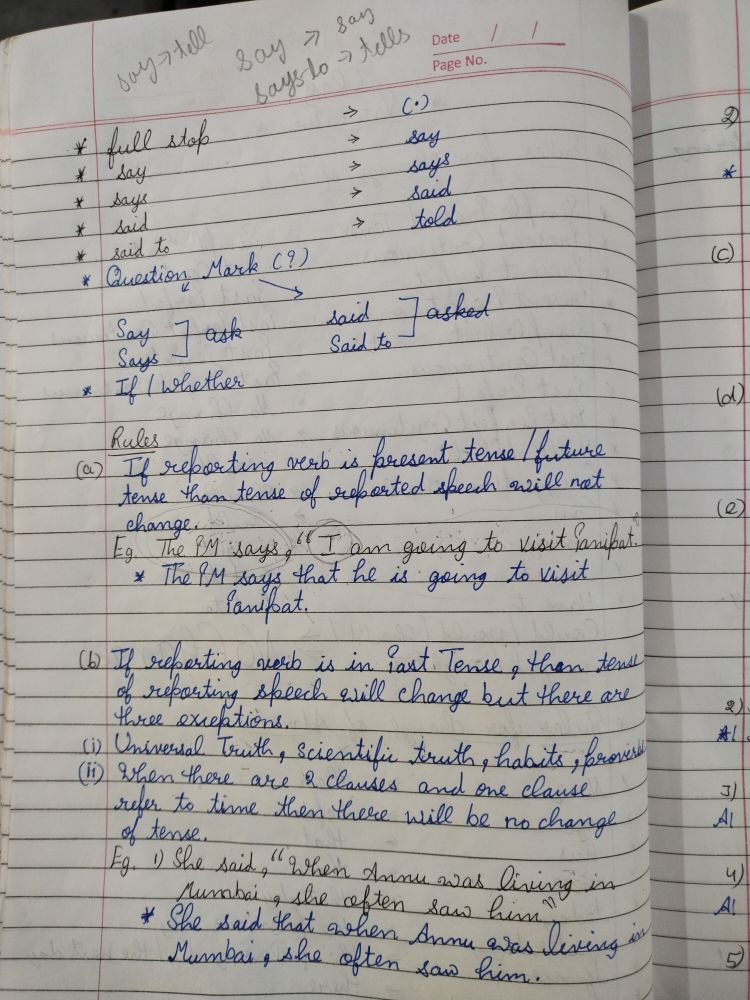 say → tell
Say → say
says to → tells
Date / /
Page No.
* full stop → (.)
* say → say
* says → says
* said → said
* said to → told
* Question Mark (?)
Say ] ask said ] asked
Says Said to
* If / whether
Rules
(a) If reporting verb is present tense / future
tense than tense of reported speech will not
change.
Eg. The PM says, "I am going to visit Panipat."
* The PM says that he is going to visit
Panipat.
(b) If reporting verb is in Past Tense, then tense
of reporting speech will change but there are
three exceptions.
(i) Universal Truth, scientific truth, habits, proverb
(ii) When there are 2 clauses and one clause
refer to time then there will be no change
of tense.
Eg. 1) She said, "When Annu was living in
Mumbai, she often saw him"
* She said that when Annu was living in
Mumbai, she often saw him.
2)
*
(c)
(d)
(e)
2)
*
3)
A
4)
A
5)